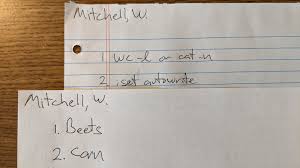 Mitchell, W.
1. wc -l or cat -n
2. :set autowrite
Mitchell, W.
1. Beets
2. Corn